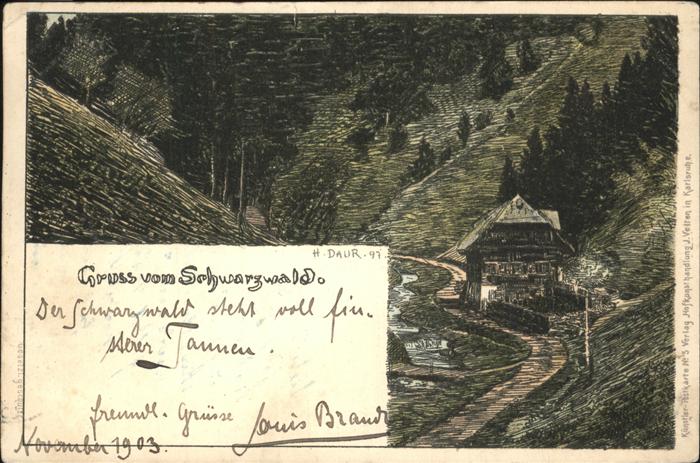 H. DAUR. 97
Gruss vom Schwarzwald.
Der Schwarzwald steht voll fin-
sterer Tannen.
freundl. Grüsse
Louis Brandt
November 1903.
Künstler-Postkarte No 5 Verlag Hofkunsthandlung J. Velten in Karlsruhe.
Gesetzl. geschützt